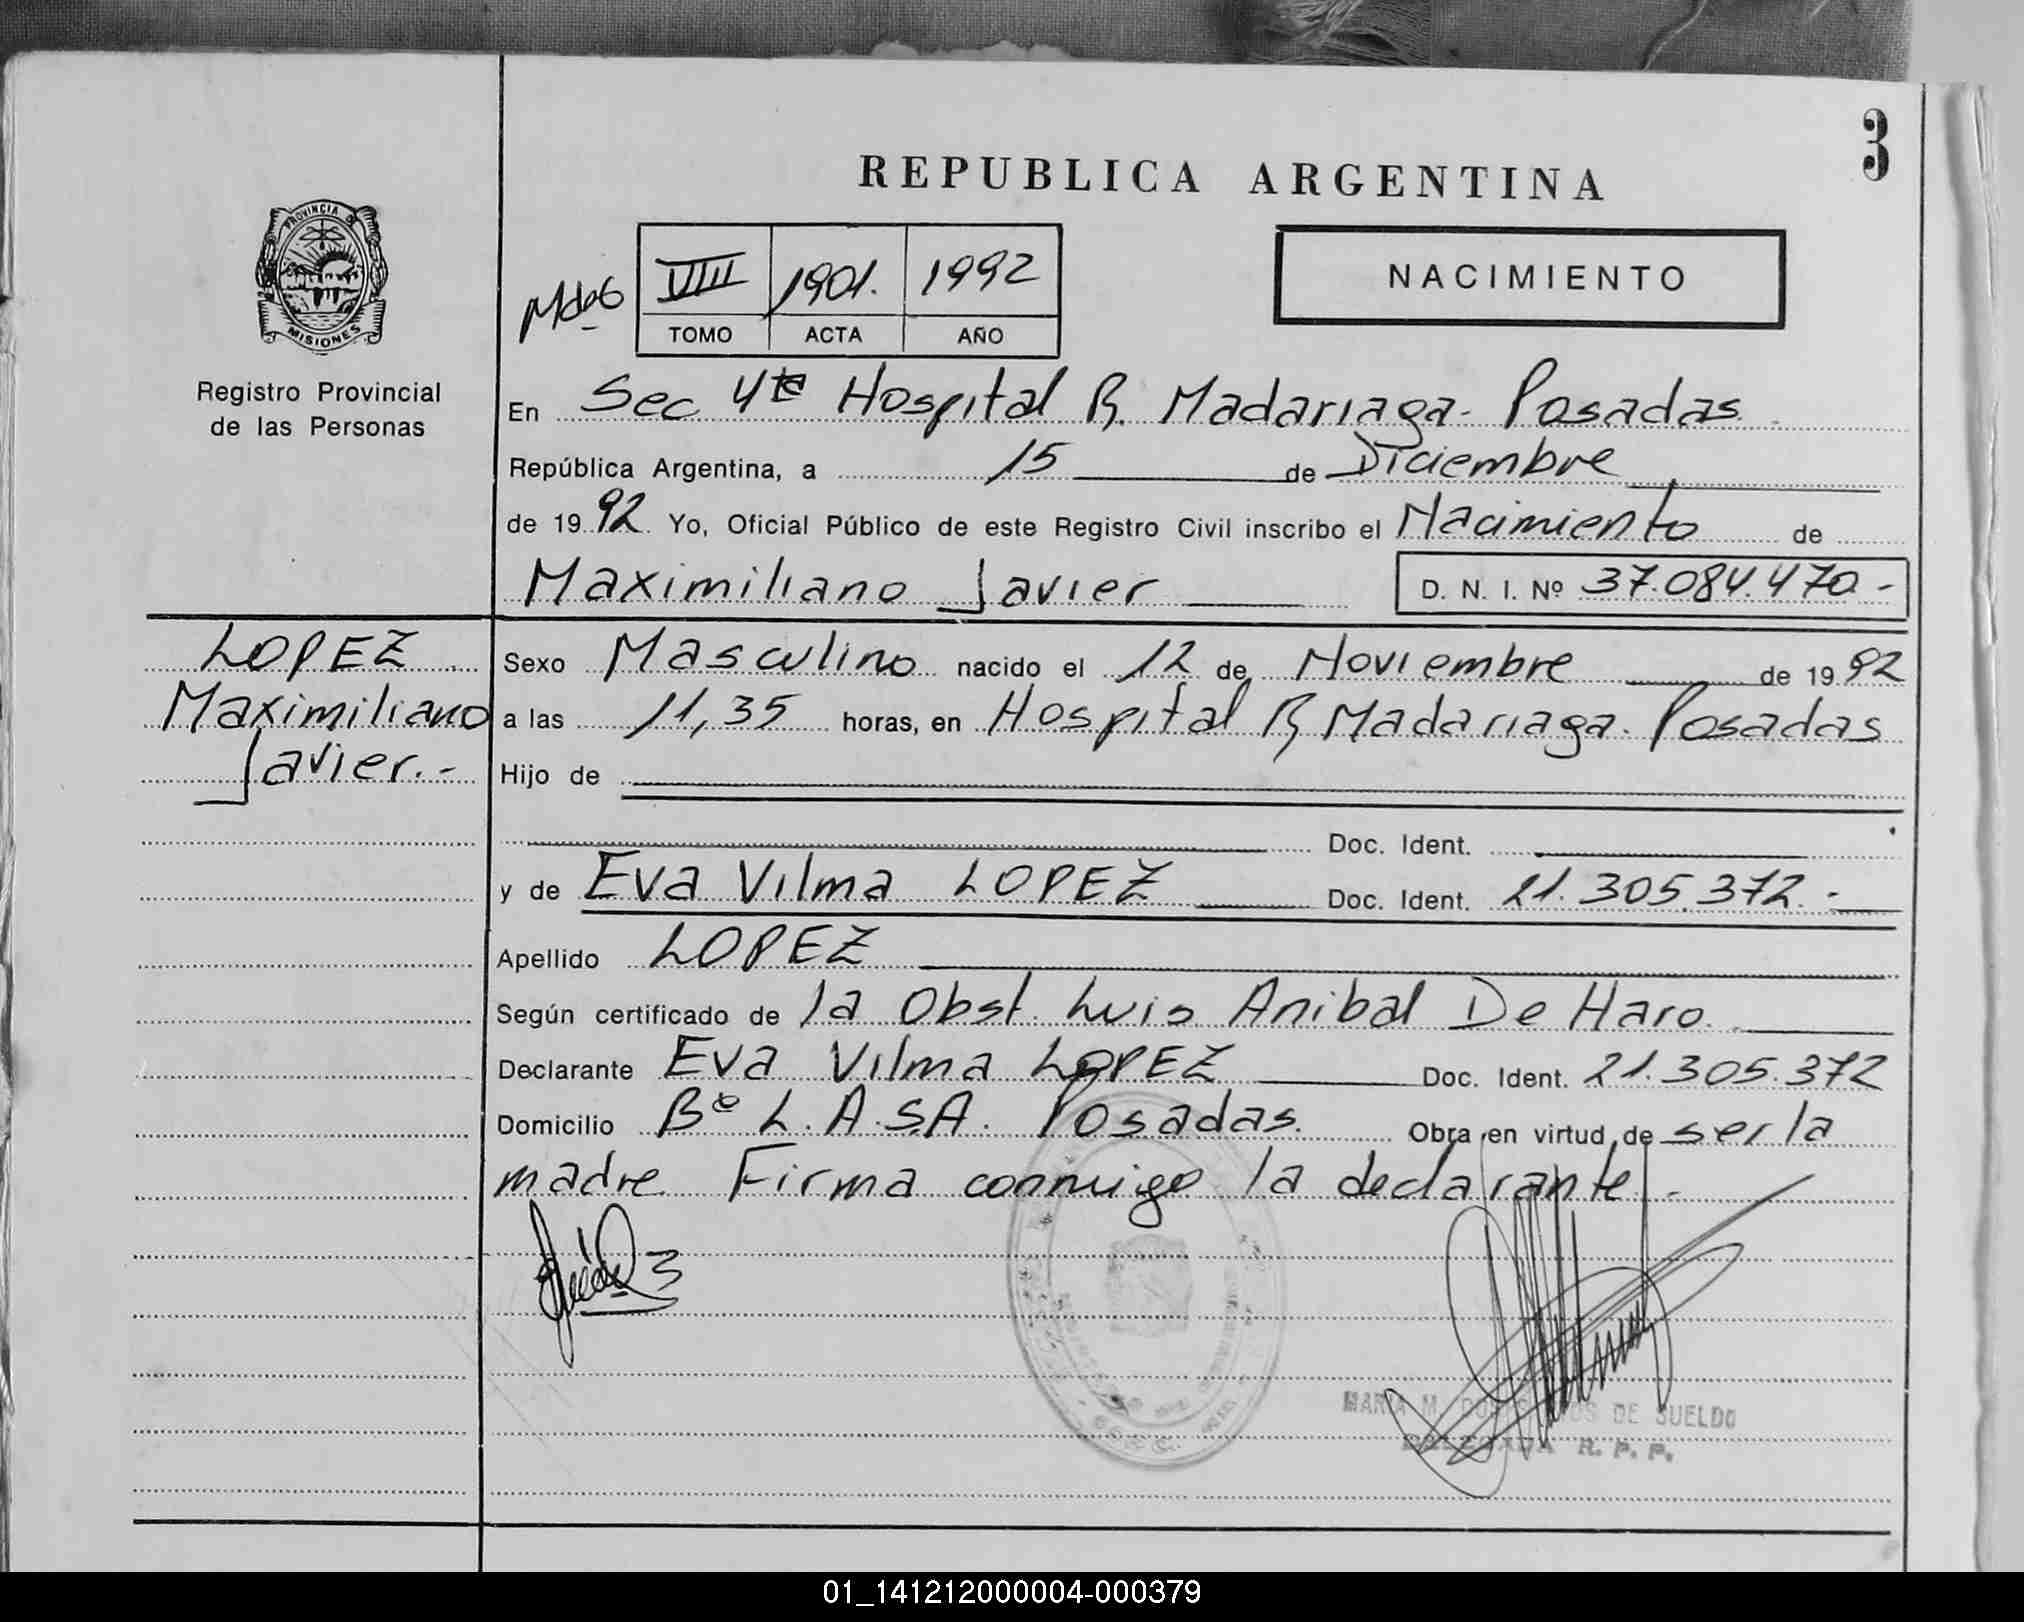 3
REPUBLICA ARGENTINA
PROVINCIA DE
MISIONES
Registro Provincial
de las Personas
VIII 1901. 1992
TOMO ACTA AÑO
NACIMIENTO
En Sec 4ta Hospital R. Madariaga - Posadas
República Argentina, a 15 de Diciembre
de 1992 Yo, Oficial Público de este Registro Civil inscribo el Nacimiento de
Maximiliano Javier
D. N. I. Nº 37.084.470.-
LOPEZ
Maximiliano
Javier.-
Sexo Masculino nacido el 12 de Noviembre de 1992
a las 11,35 horas, en Hospital R Madariaga. Posadas
Hijo de
Doc. Ident.
y de Eva Vilma LOPEZ Doc. Ident. 21.305.372.-
Apellido LOPEZ
Según certificado de la Obst. Luis Anibal De Haro
Declarante Eva Vilma LOPEZ Doc. Ident. 21.305.372
Domicilio Bº L.A.S.A. Posadas. Obra en virtud de ser la
madre Firma conmigo la declarante.
MARIA M. DE SUELDO
DELEGADA R. P. P.
01_141212000004-000379